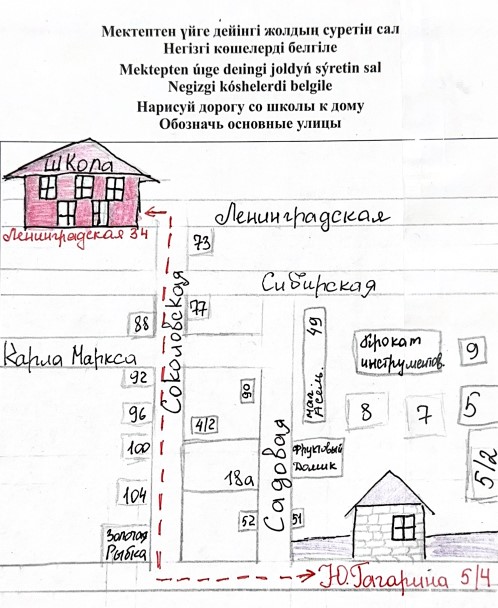 Мектептен үйге дейінгі жолдың суретін сал
Негізгі көшелерді белгіле
Mektepten úıge deıingi joldyń sýretin sal
Negizgi kóshelerdi belgile
Нарисуй дорогу со школы к дому
Обозначь основные улицы
школа
Ленинградская 34
Ленинградская
73
Сибирская
Соколовская
77
88
49
маг. Асель.
Прокат
инструментов.
9
Карла Маркса
92
90
96
8
7
5
4/2
Садовая
100
Фруктовый
Домик
5/2
18а
104
52
51
Золотая
Рыбка
Ю.Гагарина 5/4